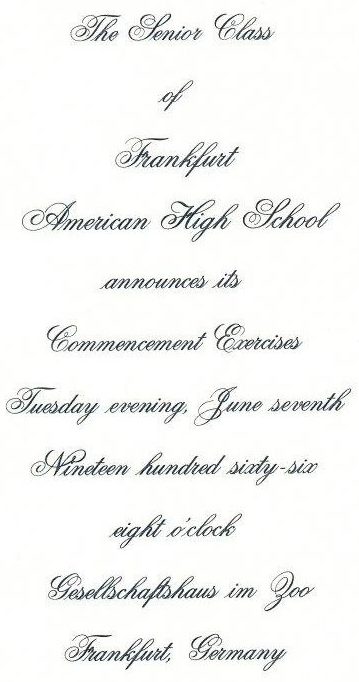 The Senior Class
of
Frankfurt
American High School
announces its
Commencement Exercises
Tuesday evening, June seventh
Nineteen hundred sixty-six
eight o'clock
Gesellschaftshaus im Zoo
Frankfurt, Germany